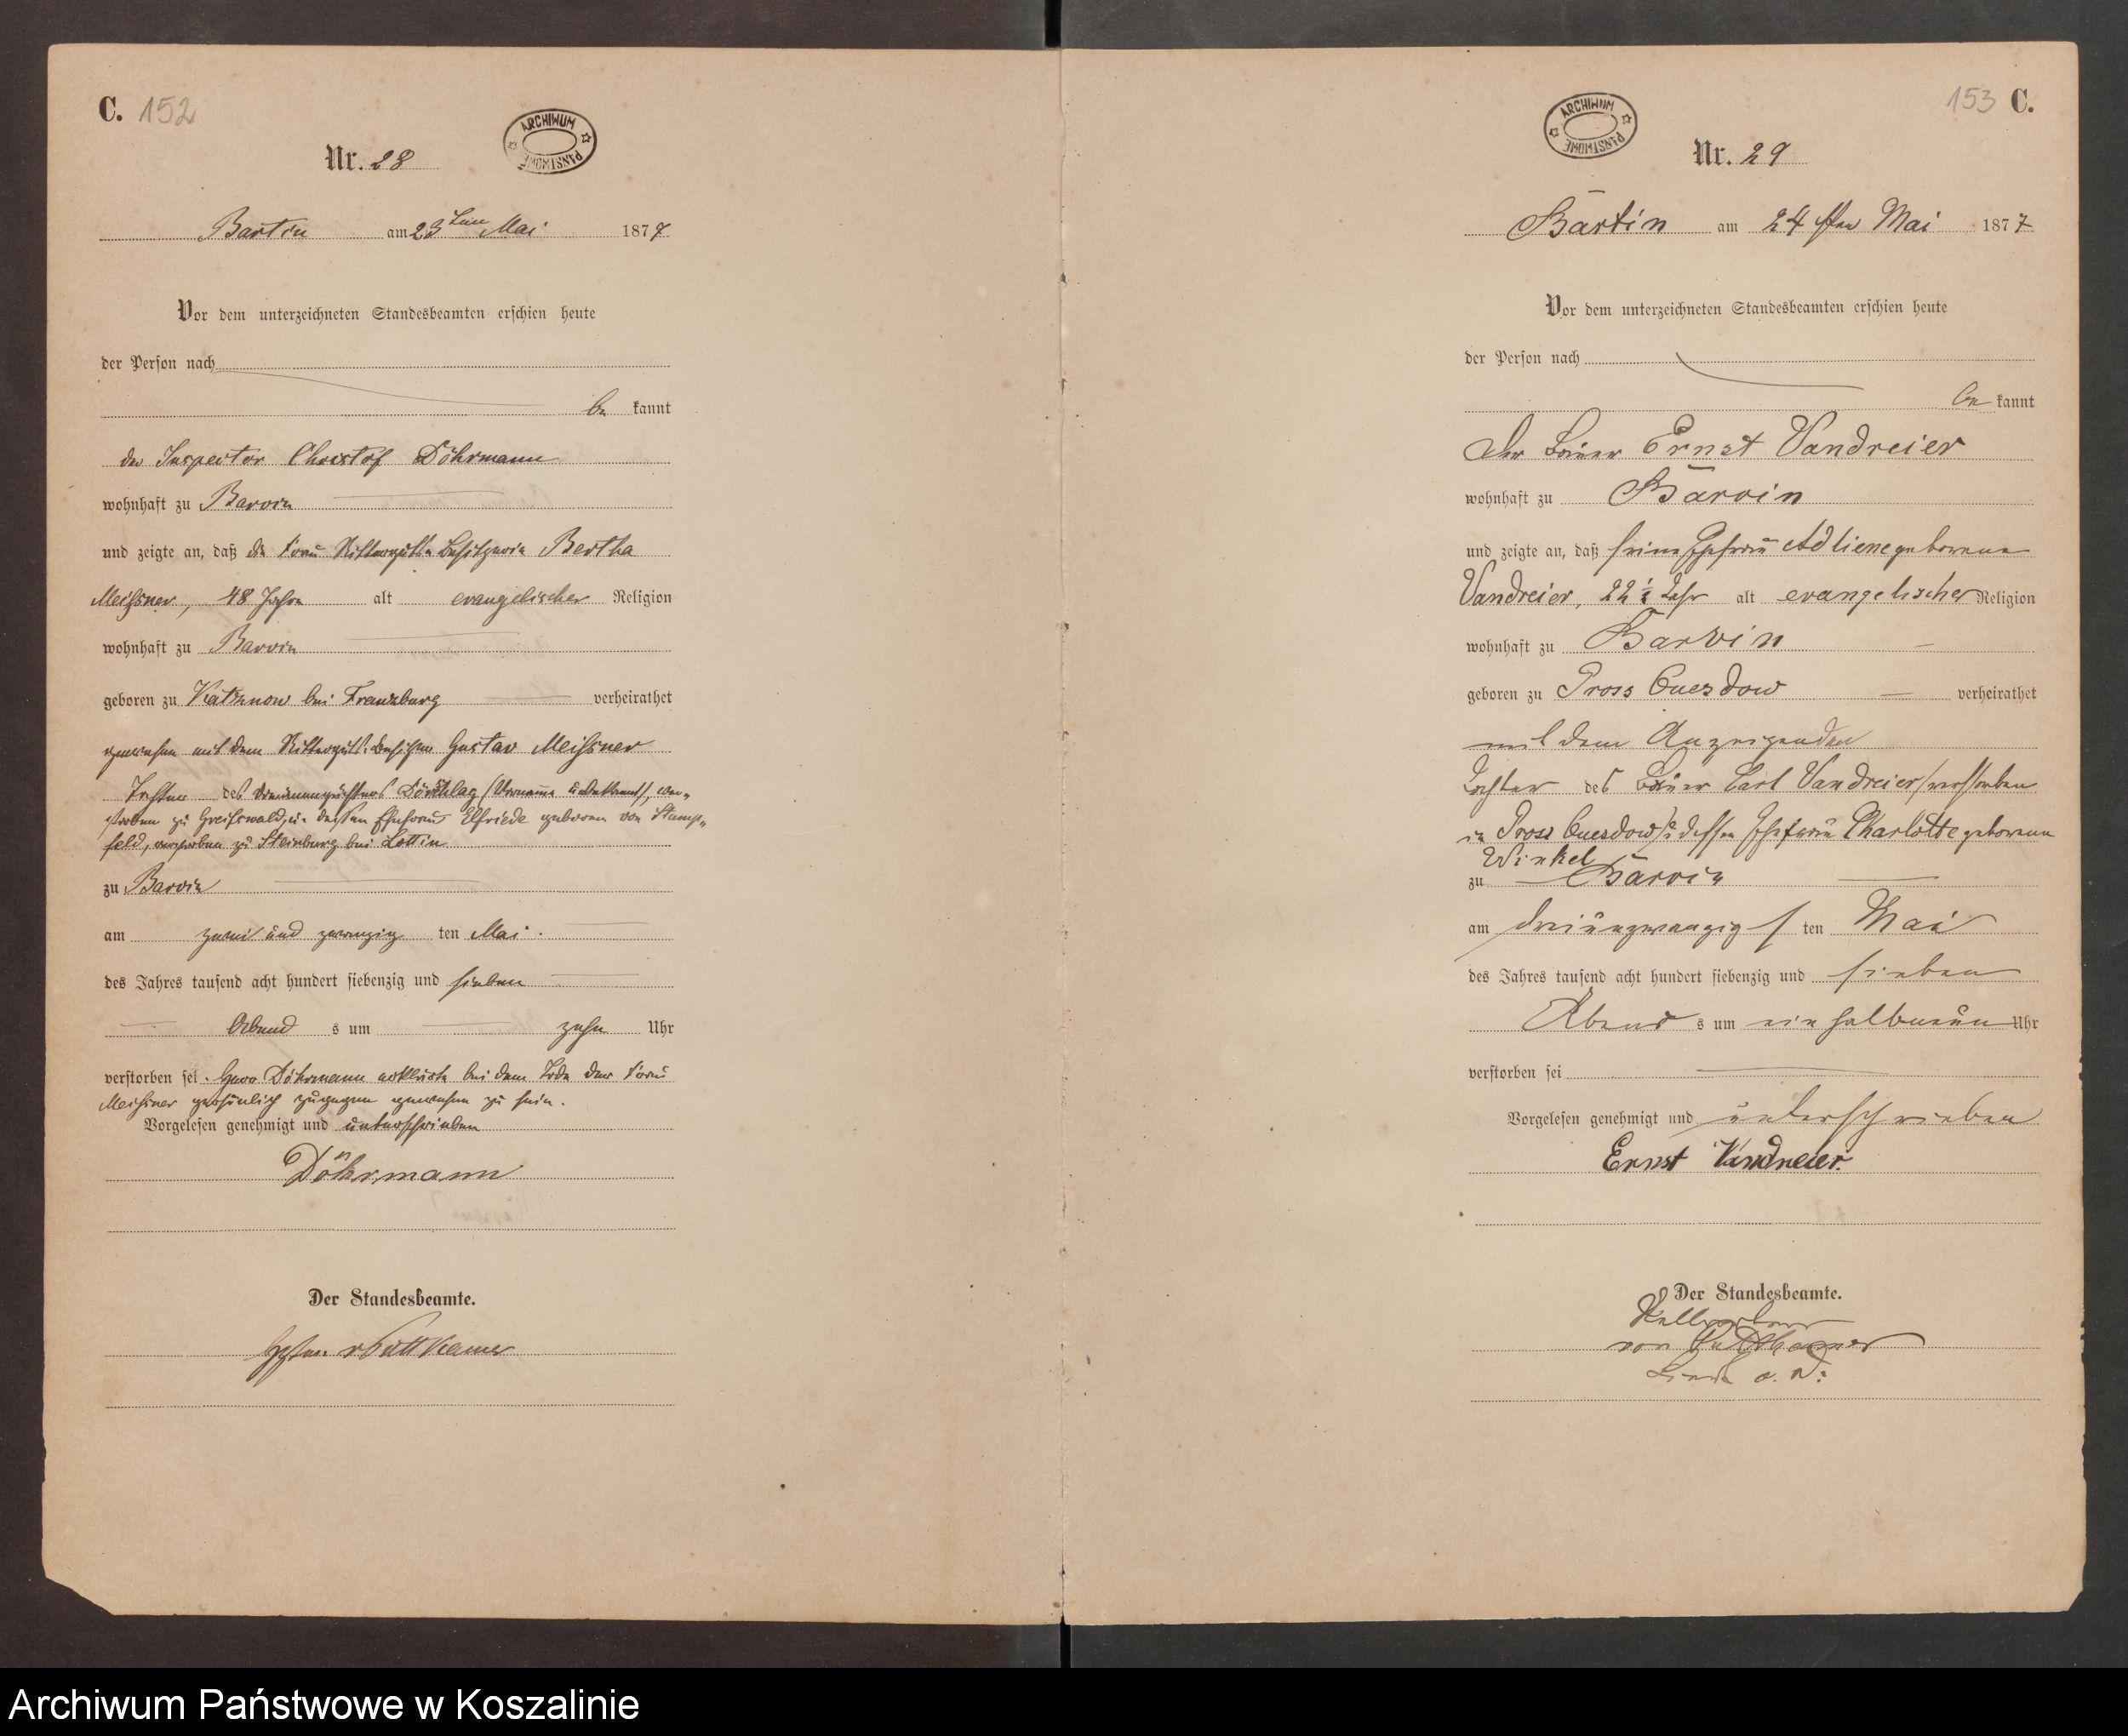 C. 152
ARCHIWUM PAŃSTWOWE
Nr. 28
Bartin am 23ten Mai 1877
Vor dem unterzeichneten Standesbeamten erschien heute
der Person nach
be kannt
der Inspector Christof Döhrmann
wohnhaft zu Barvin
und zeigte an, daß die Frau Ritterguts Besitzerin Bertha
Meißner, 48 Jahre alt evangelischer Religion
wohnhaft zu Barvin
geboren zu Katznow bei Franzburg verheirathet
gewesen mit dem Ritterguts-Besitzer Gustav Meißner
Tochter des (Vorname unbekannt), ver-
storben zu Greifswald, u. dessen Ehefrau Elfriede geboren von Stamp-
feld, verstorben zu Steinburg bei Lottin
zu Barvin
am zwei und zwanzig ten Mai.
des Jahres tausend acht hundert siebenzig und sieben
Abend s um zehn Uhr
verstorben sei. Herr Döhrmann erklärte bei dem Tode der Frau
Meißner persönlich zugegen gewesen zu sein.
Vorgelesen genehmigt und unterschrieben
Döhrmann
Der Standesbeamte.
v Puttkamer
153 C.
ARCHIWUM PAŃSTWOWE
Nr. 29
Bartin am 24 ften Mai 1877
Vor dem unterzeichneten Standesbeamten erschien heute
der Person nach
be kannt
Der Bauer Ernst Vandreier
wohnhaft zu Barvin
und zeigte an, daß seine Ehefrau Adliene geborene
Vandreier, 22½ Jahr alt evangelischer Religion
wohnhaft zu Barvin
geboren zu Gross Quesdow verheirathet
mit dem Anzeigenden
Tochter des Bauer Carl Vandreier (verstorben
in Gross Quesdow) u dessen Ehefrau Charlotte geborene
Winkel
zu Barvin
am dreiunzwanzigs ten Mai
des Jahres tausend acht hundert siebenzig und sieben
Abend s um ein halbneun Uhr
verstorben sei
Vorgelesen genehmigt und unterschrieben
Ernst Vandreier.
Der Standesbeamte.
von Puttkamer
a. D.
Archiwum Państwowe w Koszalinie